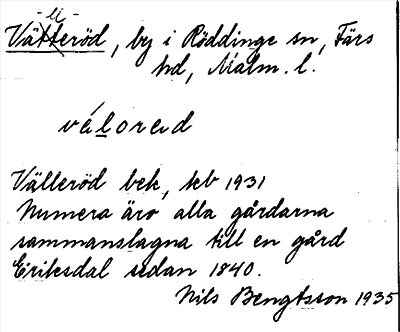 Välleröd, by i Röddinge sn, Färs
hd, Malm. l.
vé̱lorad
Välleröd bek, kb 1931
Numera äro alla gårdarna
sammanslagna till en gård
Eriksdal sedan 1840.
Nils Bengtsson 1935